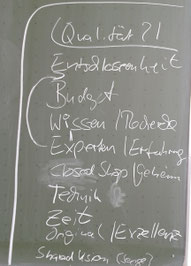 (Qualität?!
Entschlossenheit
Budget
Wissen / Methode
Experten / Erfahrung
Closed Shop / Geheim
Technik
Zeit
Original / Exzellenz
Shared Vision (sense?)